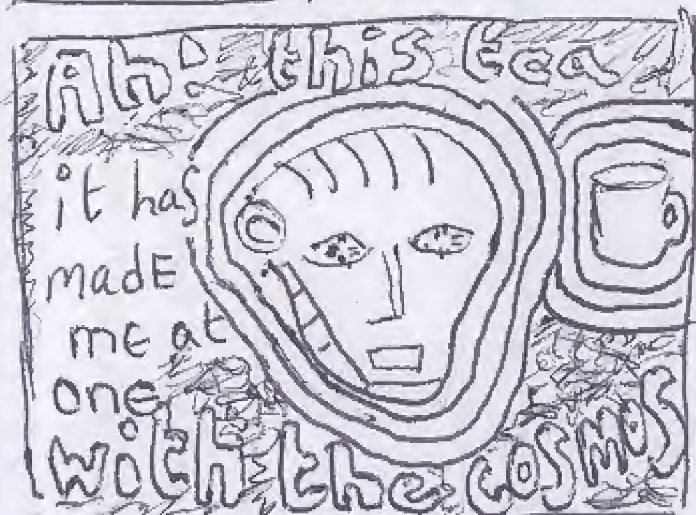 Ah! this tea!
it has
madE
me at
one
with the cosmos